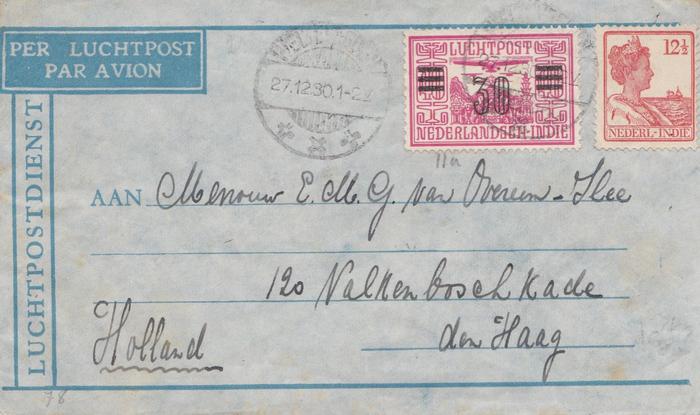 PER LUCHTPOST
PAR AVION
LUCHTPOSTDIENST
27.12.30.1-2
LUCHTPOST
30
40 40
NEDERLANDSCH-INDIE
12½
NEDERL-INDIE
11a
AAN Mevrouw E. M. G. van Overeem-Slee
120 Valkenboschkade
den Haag
Holland
78